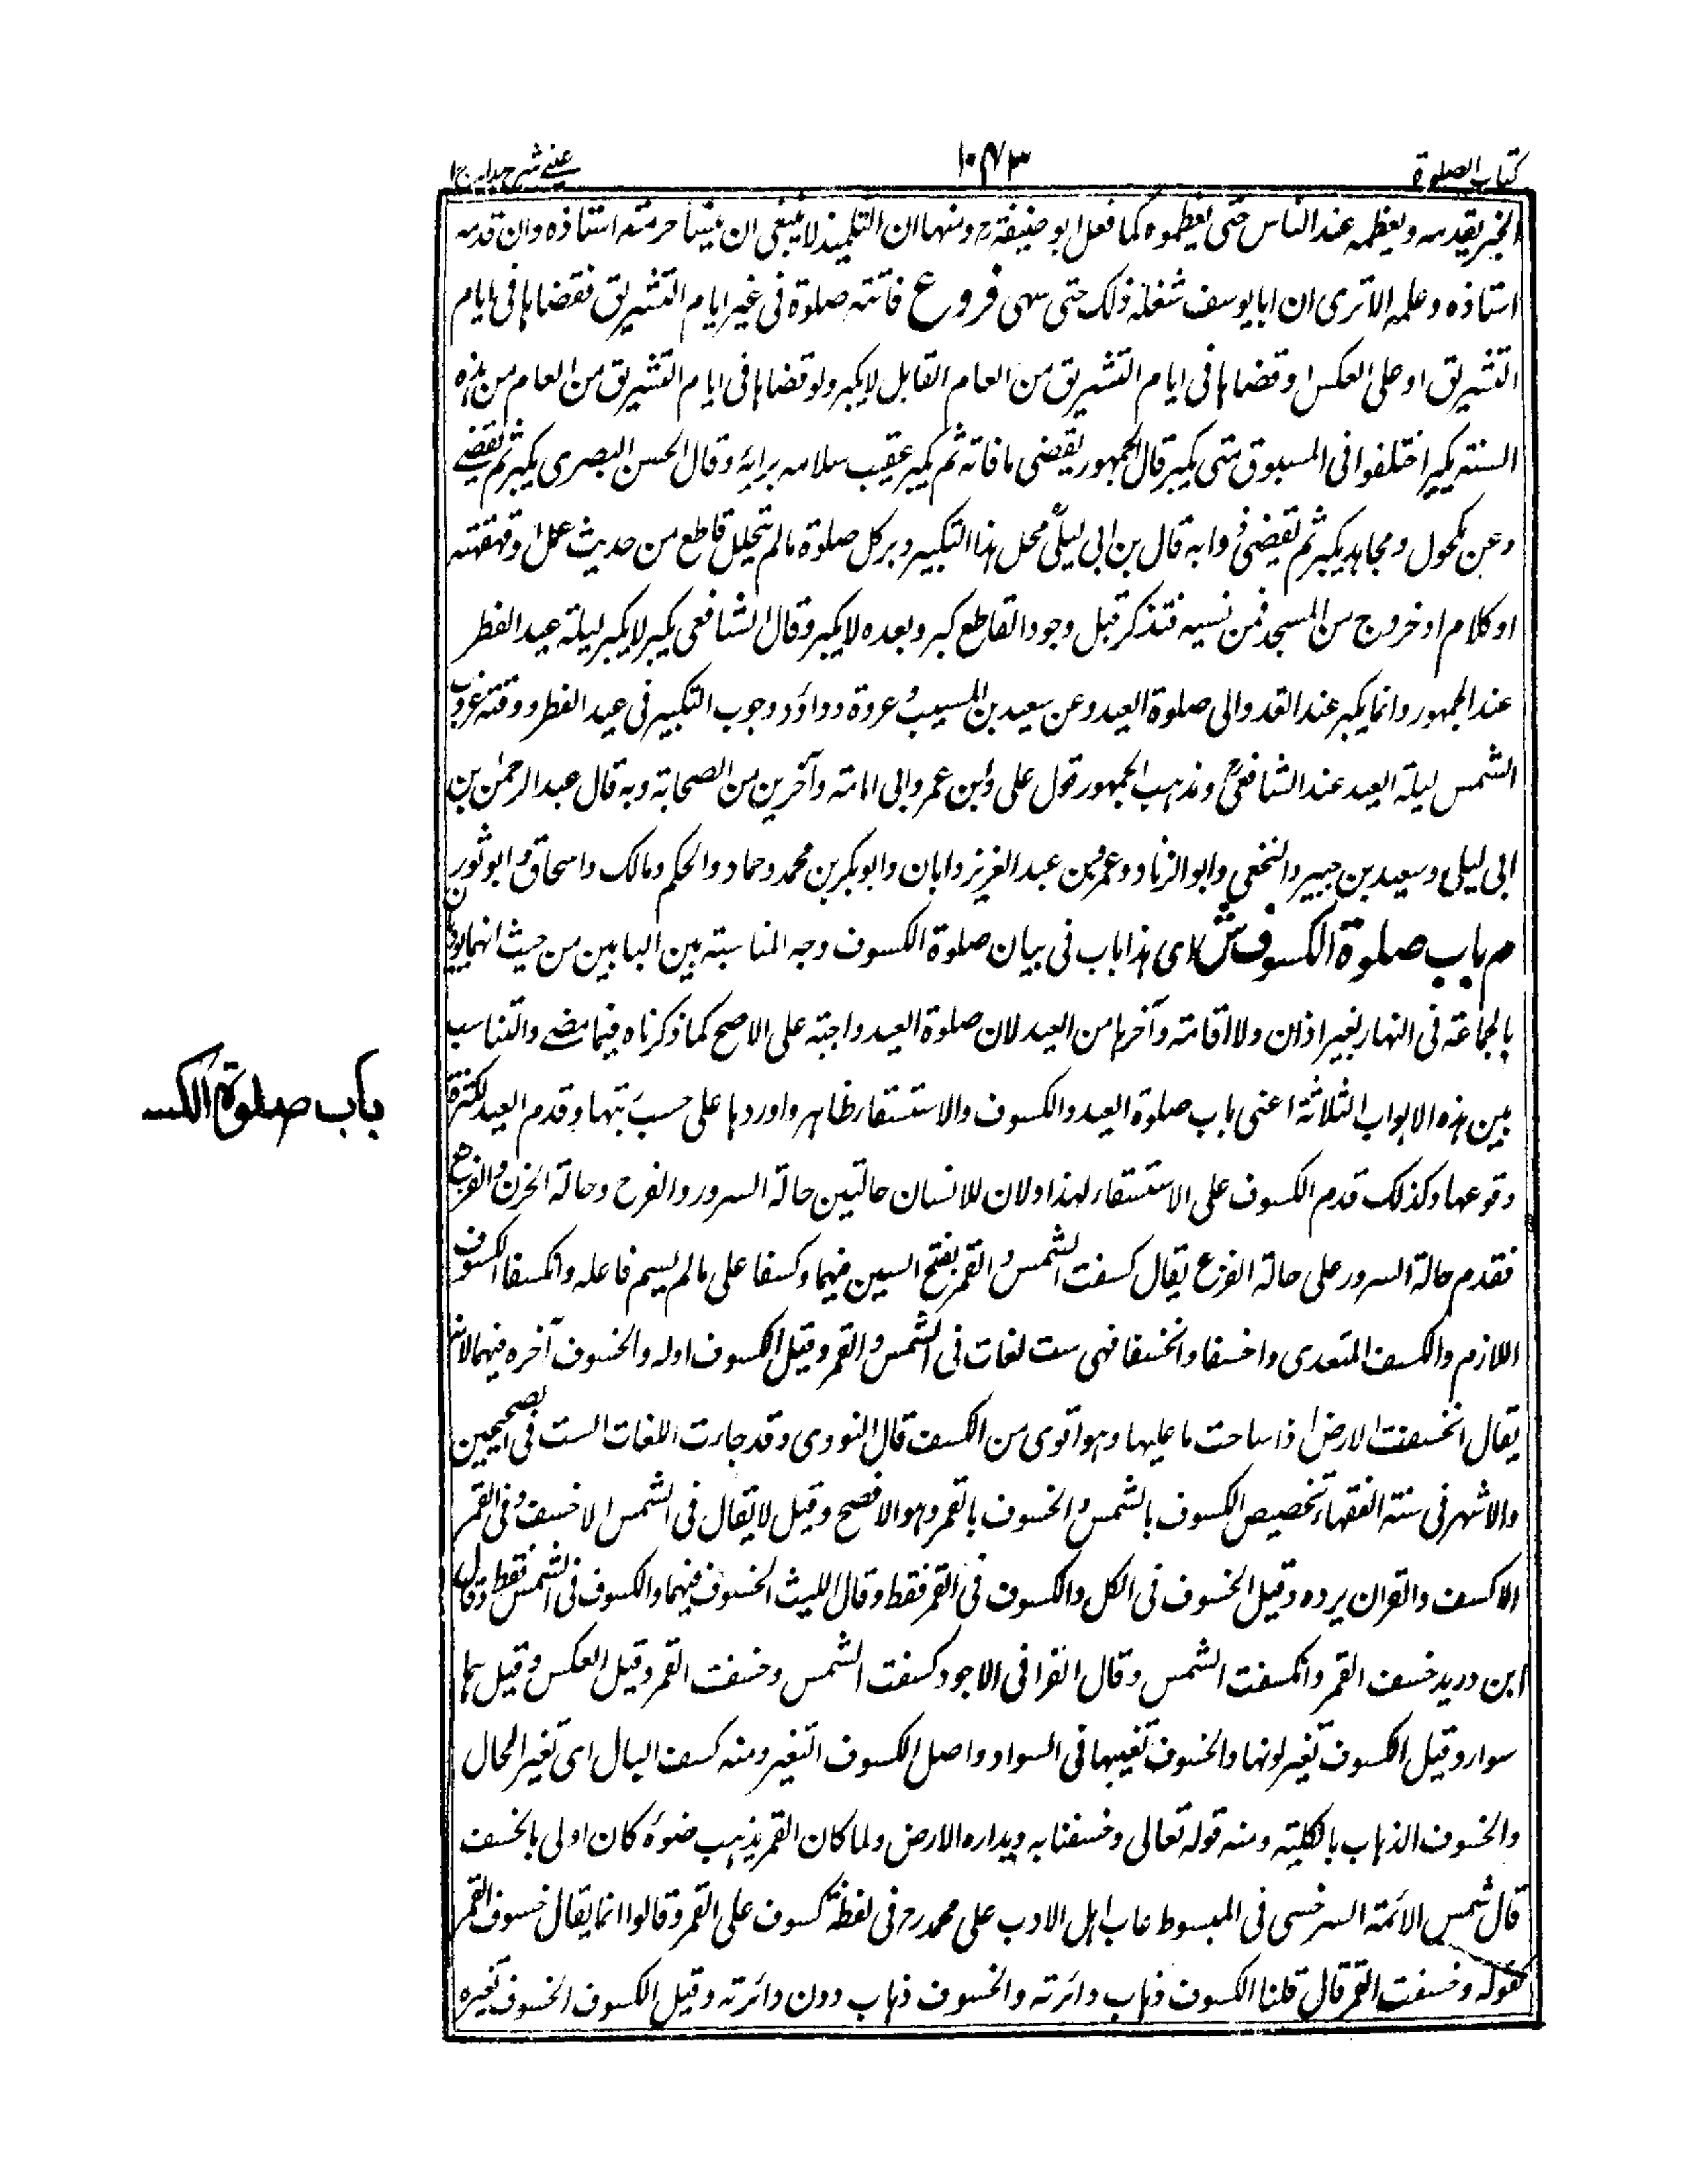 كتاب الصلوة
١٠٤٣
عينى شرح هدايه ج ١
الخير يقدمه ويعظمه عند الناس حتى يعظموه كما فعل ابو حنيفة رح ومنها ان التلميذ لا ينبغى ان ينسا حرمته استاذه وان قدمه
استاذه وعلمه الا ترى ان ابا يوسف شغله ذلك حتى سهى فروع فاتته صلوة فى غير ايام التشريق فقضاها فى ايام
التشريق او على العكس او قضاها فى ايام التشريق من العام القابل لا يكبر ولو قضاها فى ايام التشريق من العام من هذه
السنته يكبر اختلفوا فى المسبوق متى يكبر قال الجمهور يقضى ما فاته ثم يكبر عقيب سلامه برايه وقال الحسن البصرى يكبر ثم يقضى
وعن مكحول ومجاهد يكبر ثم يقضى وابه قال بن ابى ليلى محل هذا التكبير دبر كل صلوة ما لم يتخلل قاطع من حديث عمل وقهقهته
او كلام او خروج من المسجد فمن نسيه فتذكر قبل وجود القاطع كبر وبعده لا يكبر وقال الشافعى يكبر لا يكبر ليلة عيد الفطر
عند الجمهور وانما يكبر عند الغدو الى صلوة العيد وعن سعيد بن المسيب وعروة وداؤد وجوب التكبير فى عيد الفطر ووقته غروب
الشمس ليلة العيد عند الشافعى ومذهب الجمهور قول على وابن عمر وابى امامته وآخرين من الصحابة وبه قال عبد الرحمن بن
ابى ليلى وسعيد بن جبير والنخعى وابو الزناد وعمر بن عبد العزيز وابان وابو بكر بن محمد وحماد والحكم ومالك واسحاق وابو ثور
م باب صلوة الكسوف ش اى هذا باب فى بيان صلوة الكسوف وجه المناسبته بين البابين من حيث انهما يوديان
بالجماعته فى النهار بغير اذان ولا اقامته وآخرها من العيد لان صلوة العيد واجبته على الاصح كما ذكرناه فيما مضى والتناسب
بين هذه الابواب الثلاثة اعنى باب صلوة العيد والكسوف والاستسقاء ظاهر واوردها على حسب رتبتها وقدم العيد لكثرة
وقوعها وكذلك قدم الكسوف على الاستسقاء لهذا ولان للانسان حالتين حالة السرور والفرح وحالة الحزن والفزع
فقدم حالة السرور على حالة الفزع يقال كسفت الشمس والقمر بفتح السين فيهما وكسفا على ما لم يسم فاعله وانكسفا الكسوف
اللازم والكسف المتعدى واخسفا وانخسفا فهى ست لغات فى الشمس والقمر وقيل الكسوف اوله والخسوف آخره فيهما لانه
يقال انخسفت الارض اذا ساحت ما عليها وهو اقوى من الكسف قال النووى وقد جاءت اللغات الست فى الصحيحين
والاشهر فى سنة الفقهاء تخصيص الكسوف بالشمس والخسوف بالقمر وهو الافصح وقيل لا يقال فى الشمس الا خسف وفى القمر
الا كسف والقران يرده وقيل الخسوف فى الكل والكسوف فى القمر فقط وقال الليث الخسوف فيهما والكسوف فى الشمس فقط وقال
ابن دريد خسف القمر وانكسفت الشمس وقال الفرا فى الاجود كسفت الشمس وخسفت القمر وقيل العكس وقيل هما
سواء وقيل الكسوف تغير لونها والخسوف تغيبها فى السواد واصل الكسوف التغير ومنه كسف البال اى تغير الحال
والخسوف الذهاب بالكليته ومنه قوله تعالى وخسفنا به وبداره الارض ولما كان القمر يذهب ضوءه كان اولى بالخسف
قال شمس الائمة السرخسى فى المبسوط عاب اهل الادب على محمد رح فى لفظة كسوف على القمر وقالوا انما يقال خسوف القمر
كقوله وخسفت القمر قال قلنا الكسوف ذهاب دائرته والخسوف ذهاب دون دائرته وقيل الكسوف الخسوف تغيره
باب صلوة الكس